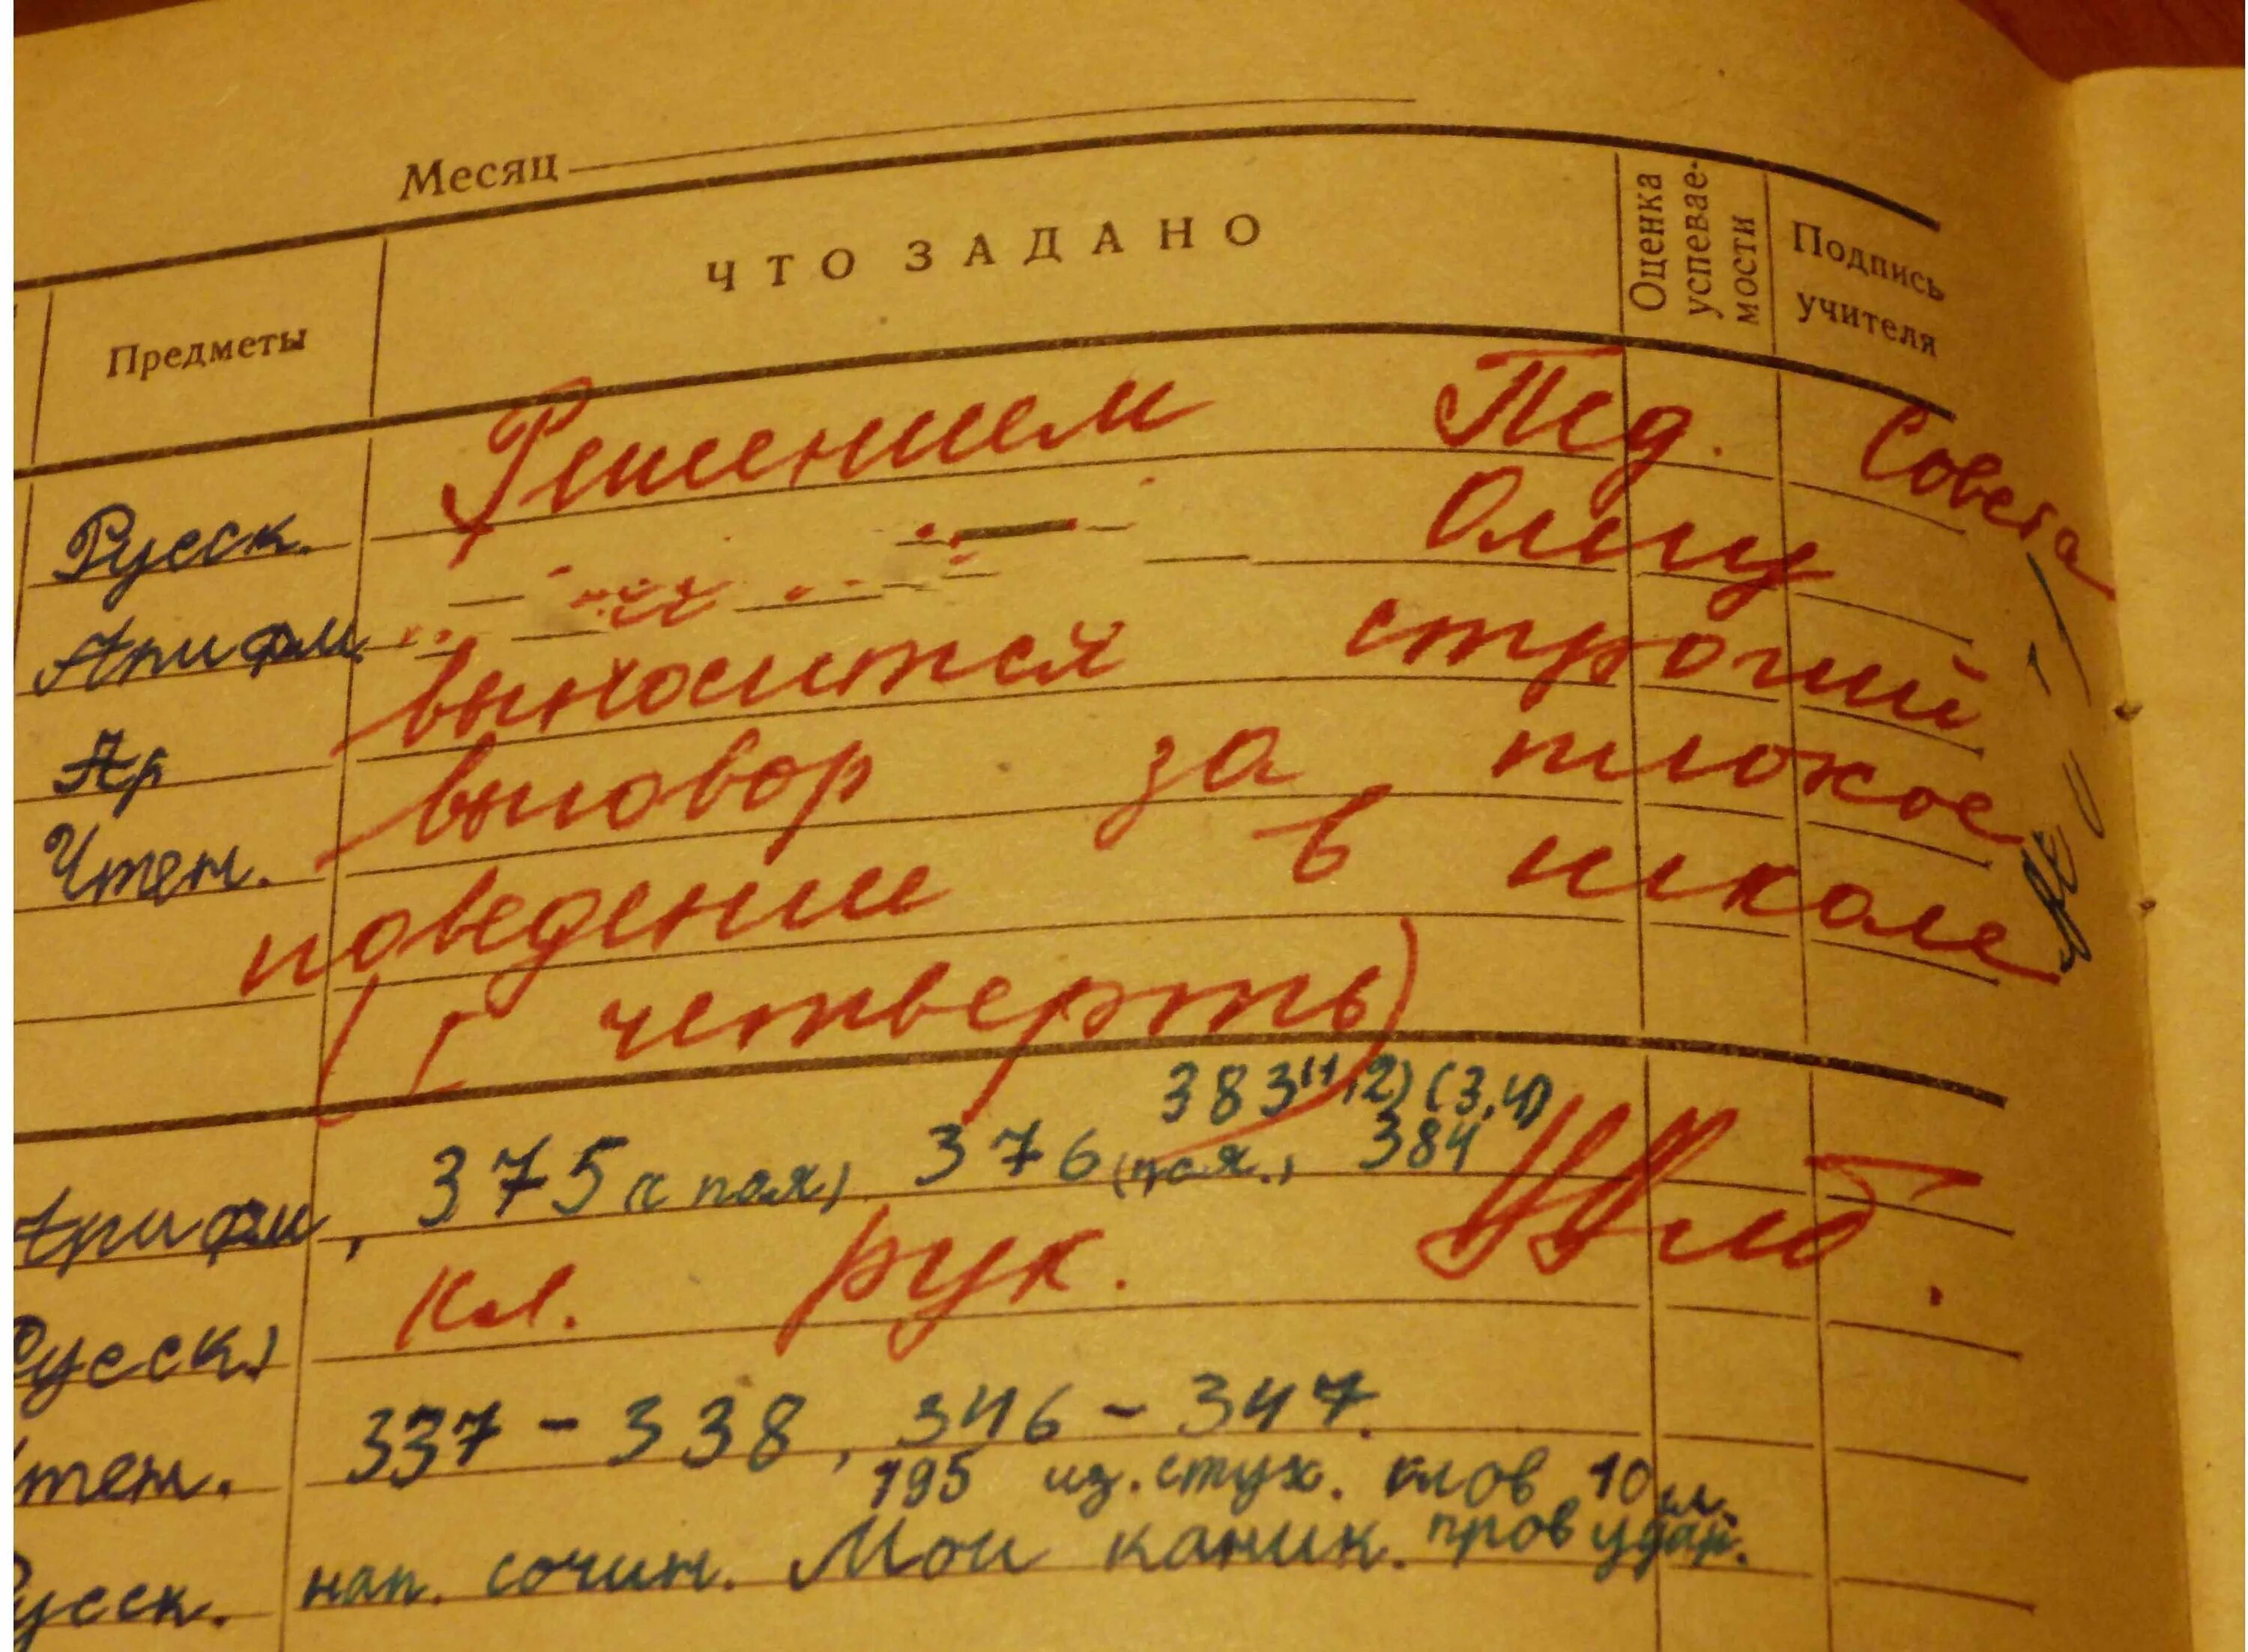 Месяц
Предметы
ЧТО ЗАДАНО
Оценка успевае-
мости
Подпись
учителя
Решением Пед. Совета
Русск.
Олигу
Арифм.
выносится строгий
Ар
выговор за плохое
Чтен.
поведении в школе
(I четверть)
383 (1,2) (3,4)
Арифм, 375 (с поя), 376 (поя., 384
кл. рук.
Русск.
337 - 338, 346 - 347.
Чтен.
195 из. стух. слов 10 сл.
Русск. нап. сочин. Мои каник. пров удар.